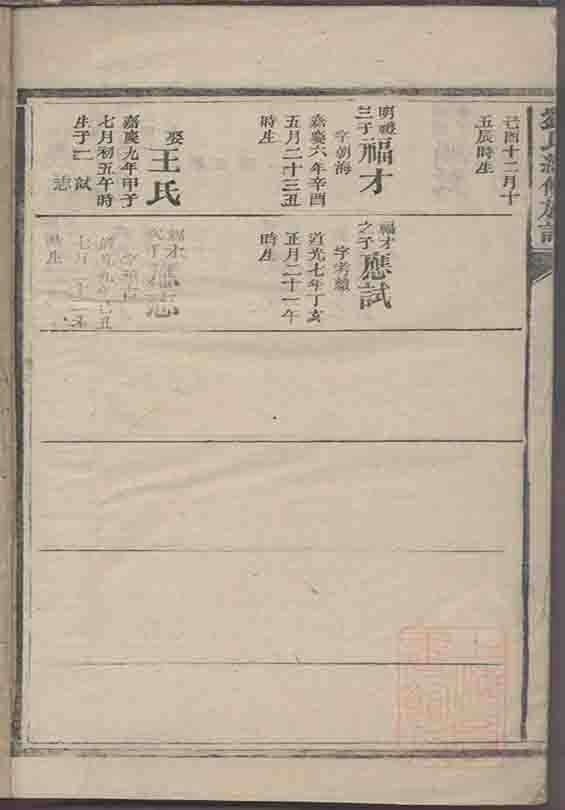 己酉十二月十
五辰時生
明禮
三子
福才
字朝海
嘉慶六年辛酉
五月二十三丑
時生
娶
王氏
嘉慶九年甲子
七月初五午時
生子二 試
志
福才
之子
應試
道光七年丁亥
正月二十一午
時生
福才
次子
應志
道光九年己丑
時生